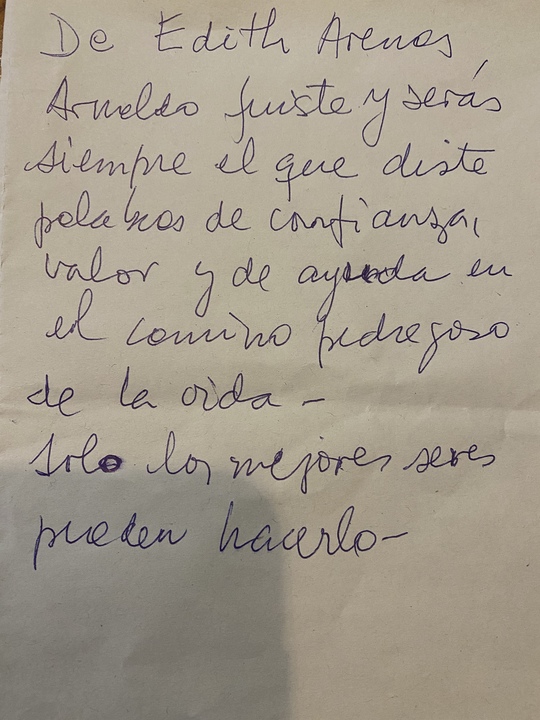 De Edith Arenas,
Arnoldo fuiste y serás
siempre el que diste
palabras de confianza,
valor y de ayuda en
el camino pedregoso
de la vida -
Solo los mejores seres
pueden hacerlo-